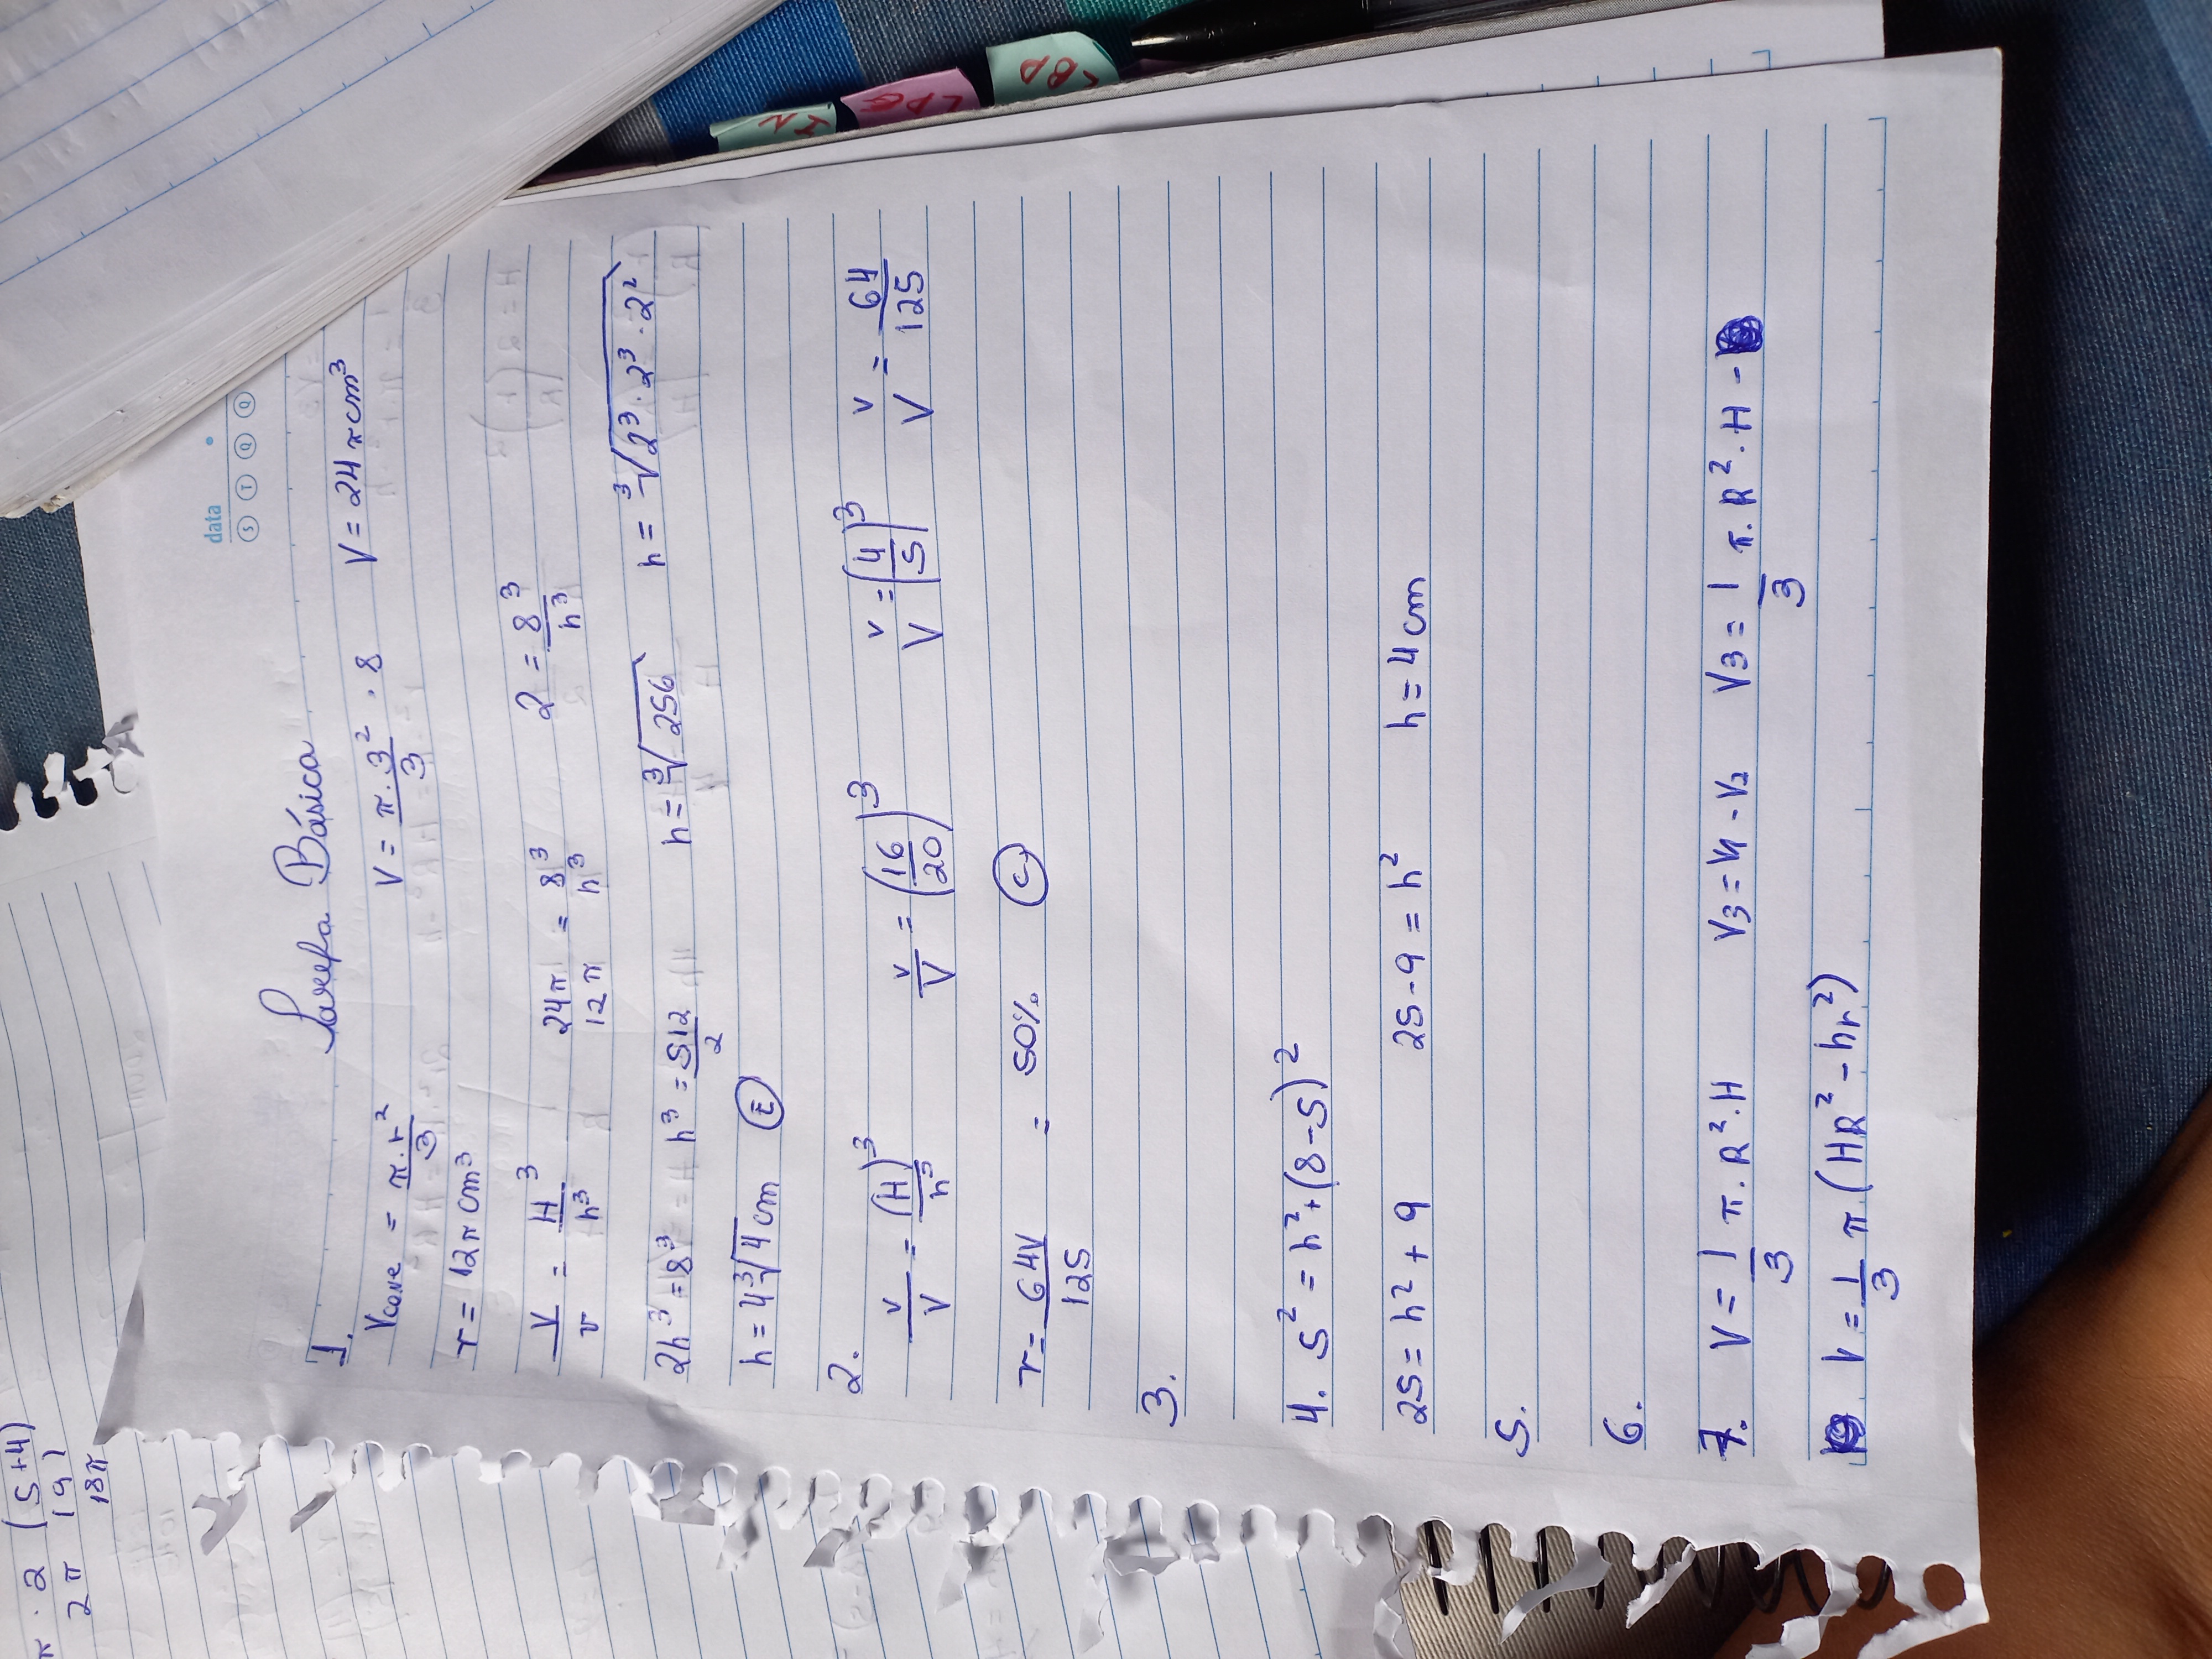 π · 2 (5+4)
2π (9)
18π
data
S T Q Q
Tarefa Básica
1.
Vcone = π.r²/3 V = π.3²/3 · 8 V = 24πcm³
v = 12π cm³
V/v = H³/h³ 24π/12π = 8³/h³ 2 = 8³/h³
2h³ = 8³ h³ = 512/2 h = ∛256 h = ∛2³·2³·2²
h = 4∛4 cm E
2.
v/V = (H)³/h³ v/V = (16/20)³ v/V = (4/5)³ v/V = 64/125
v = 64V/125 = 50% C
3.
4. 5² = h² + (8-5)²
25 = h² + 9 25-9 = h² h = 4cm
5.
6.
7. V = 1/3 π.R².H V3 = V1 - V2 V3 = 1/3 π.R².H -
V = 1/3 π (HR² - hr²)
IN
LPG
LBD